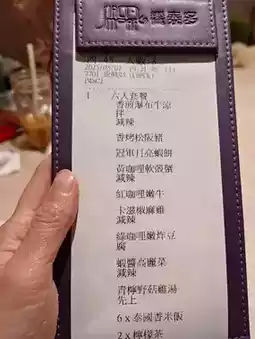 饗泰多
1 六人套餐
香煎瀑布牛涼
拌
減辣
香烤松阪豬
冠軍月亮蝦餅
黃咖哩軟殼蟹
減辣
紅咖哩嫩牛
卡滋椒麻雞
減辣
綠咖哩嫩炸豆
腐
蝦醬高麗菜
減辣
青檸野菇雞湯
先上
6 x 泰國香米飯
2 x 檸檬茶